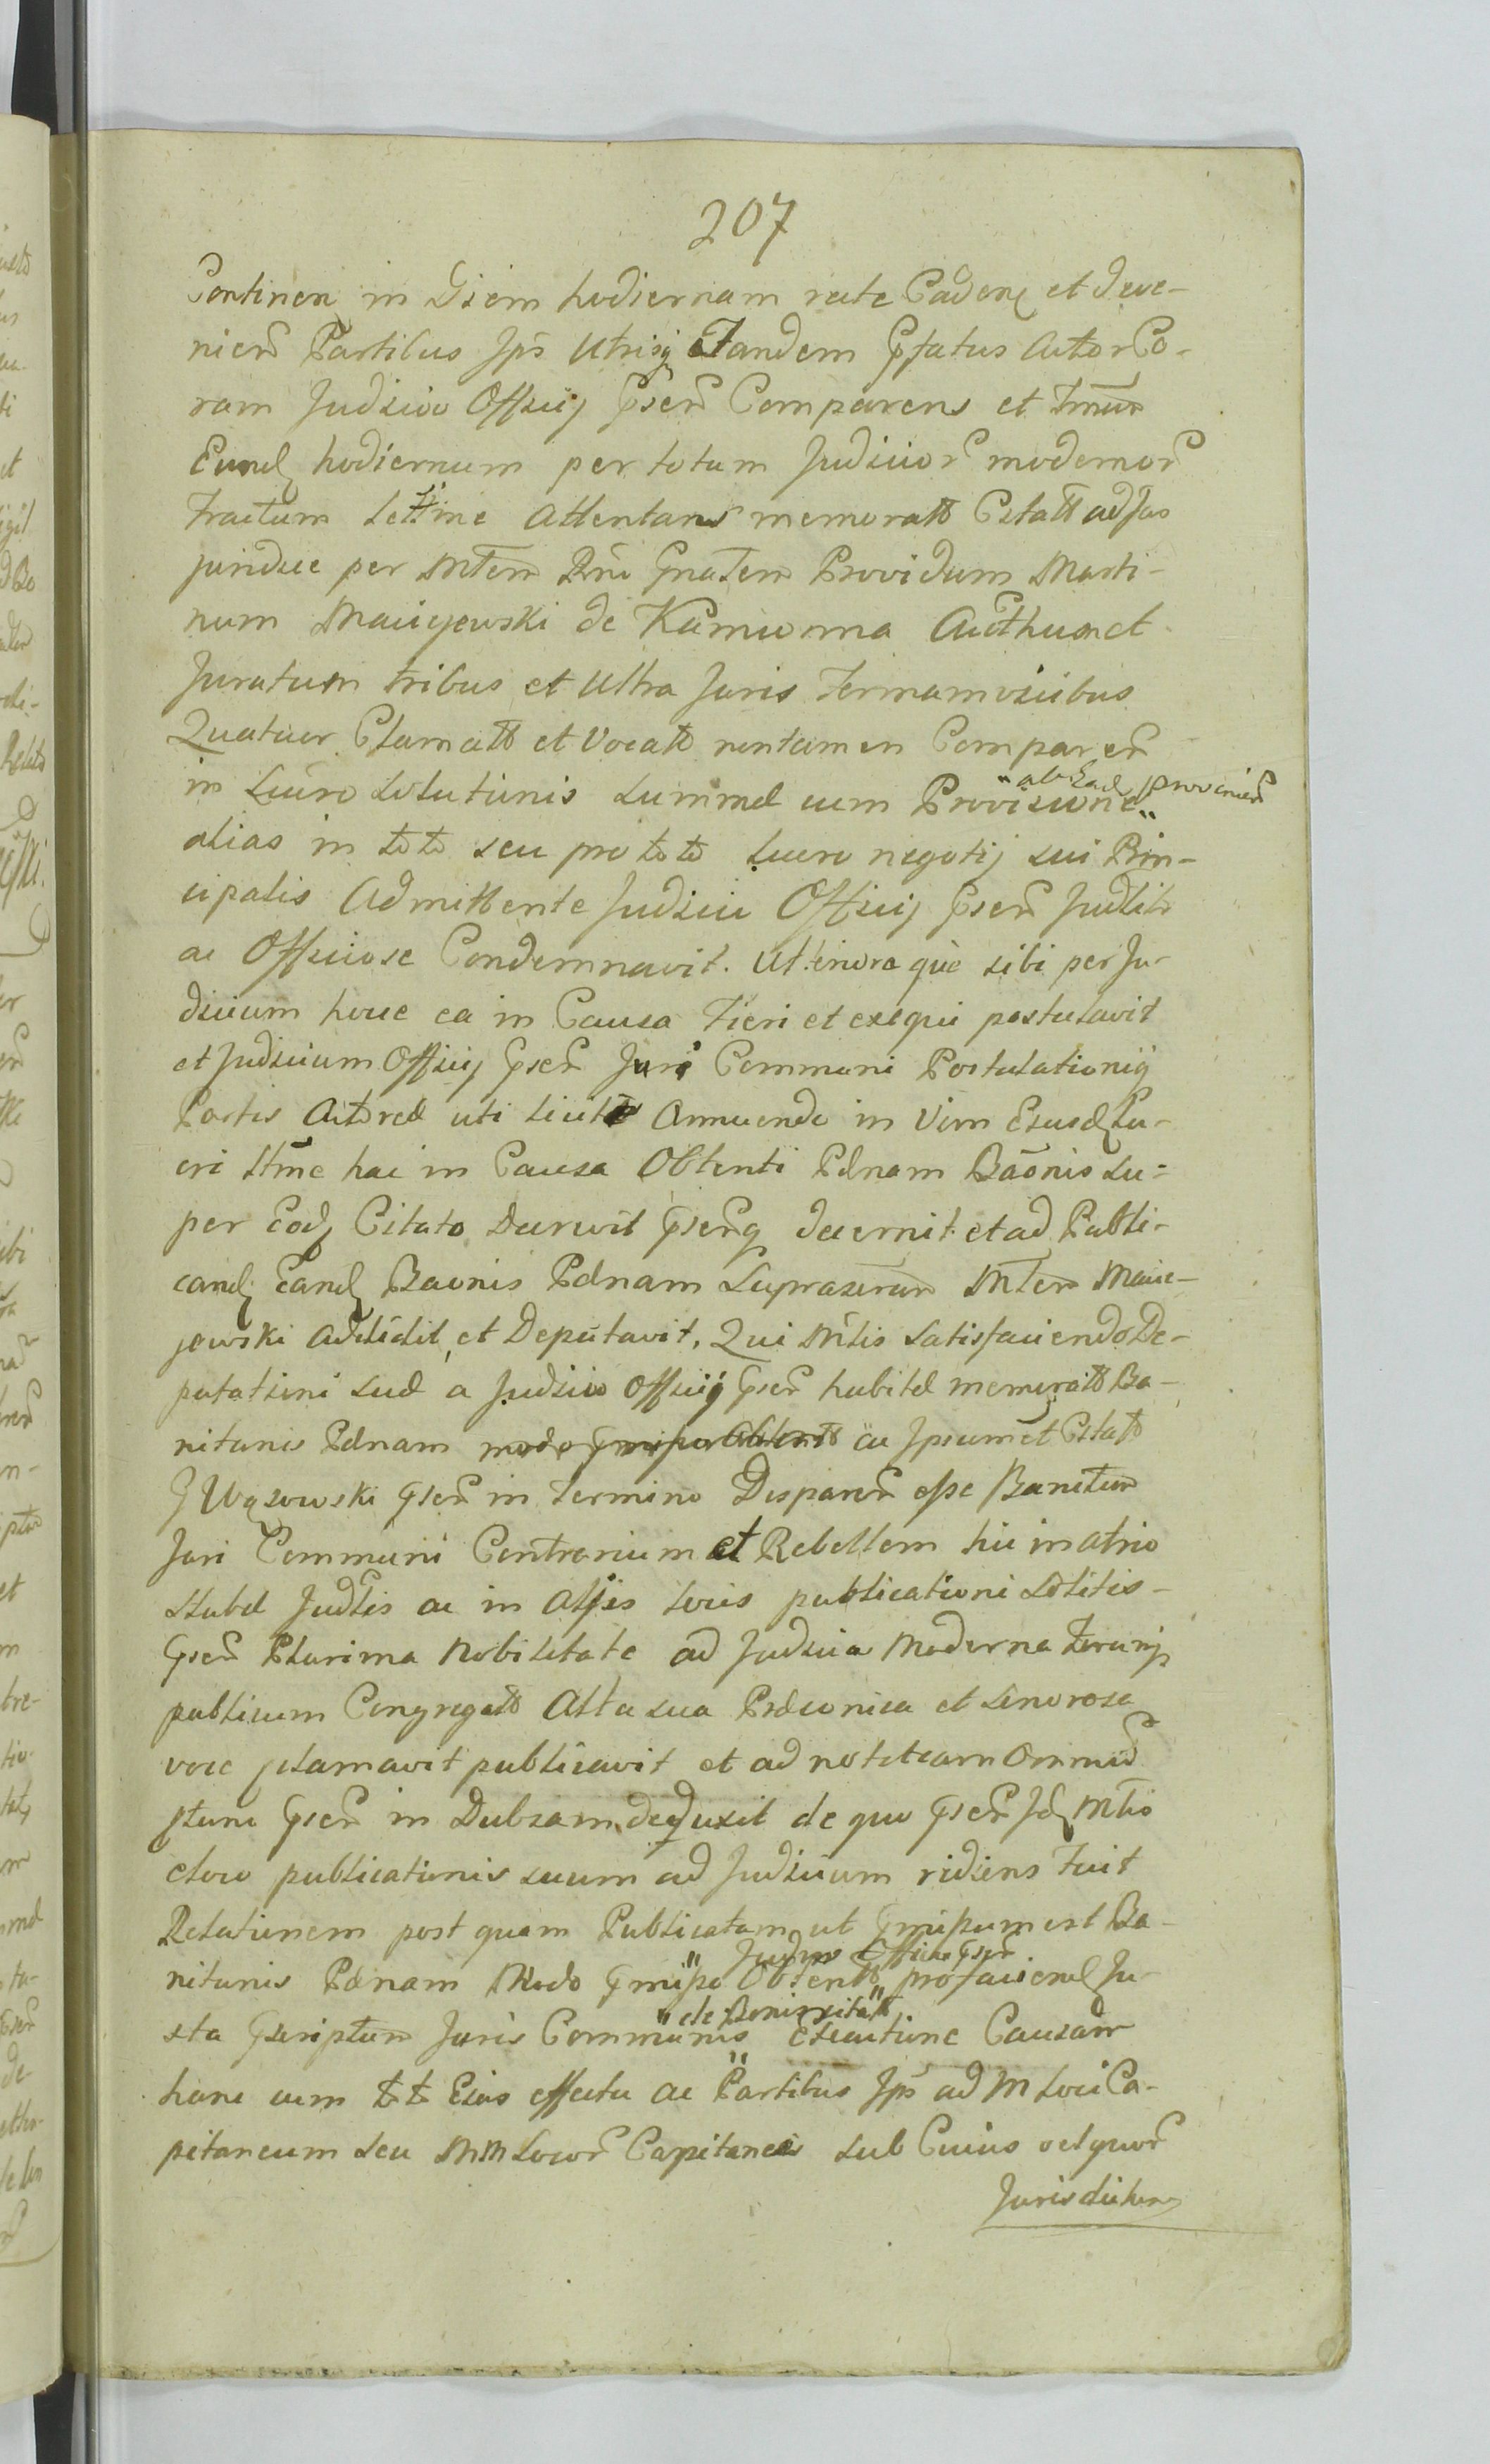 207
Continen in Diem hodiernam recte Caden et deve-
nien Partibus Ips Utrisq Tandem Pfatus Actor Co-
ram Judicio Officij Psen Comparens et Tmum
Eund hodiernum per totum Judicior modernor
Tractum Lettme Attentans memoratt Citatt ad Jus
juridice per Mtem Rni Gnalem Providum Marti-
num Maciyewski de Kamionna Aucthen et
Juratum tribus et Ultra Juris Terminis vicibus
Quatuor Clamatt et Vocatt non tamen Comparen
in Lucro Solutionis Summæ cum Provisione "ab Ead provenien"
alias in toto seu pro toto Lucro negotij sui Prin-
cipalis Admittente Judicio Officij Psen Judlitr
ac Officiose Condemnavit. Ulteriora què sibi per Ju-
dicium hocce ea in Causa Fieri et exequi postulavit
et Judicium Officij Psen Juri Communi Postulationiq
Partis Actoreæ uti licitæ Annuendo in Vim Ejusd Lu-
cri Ltme hac in Causa Obtenti Pænam Baōnis Su-
per Eod Citato Decrevit Psensq decernit et ad Publi-
cand Eand Baonis Pænam Suprascrtum Mtem Macie-
jowski Addidit, et Deputavit. Qui Mtlis Satisfaciendo De-
putationi suæ a Judicio Officij Psen habitæ memoratt Ba-
nitionis Pænam modo Pmisso Obtentt ac Ipsummet Citatt
G Wązowski Psen in Termino Disparen esse Banitum
Juri Communi Contrarium et Rebellem hic in atrio
Stubæ Judlis ac in Aliis locis publicationi Solitis
Psen Plurima Nobilitate ad Judicia Moderna Terrarum
publicum Congregatt Alta sua Præconica et Sonorosa
voce proclamavit publicavit et ad notitiam Omnium
tunc Psen in Dubzam deduxit de quo Psen Id Mtlis
clow publicationis suum ad Judicium rediens Fecit
Relationem post quam Publicatam ut Pmissum est Ba-
nitionis Pænam Modo Pmisso Obtentt "Judicio Officio Psen" pro facienda Ju-
xta Pscriptum Juris Communis "de Bonis Citatt" Executione Causam
hanc cum toto Eius effectu ac Partibus Ips ad M Loci Ca-
pitaneum seu MM Locor Capitaneos sub Cuius vel quor
Jurisdictione